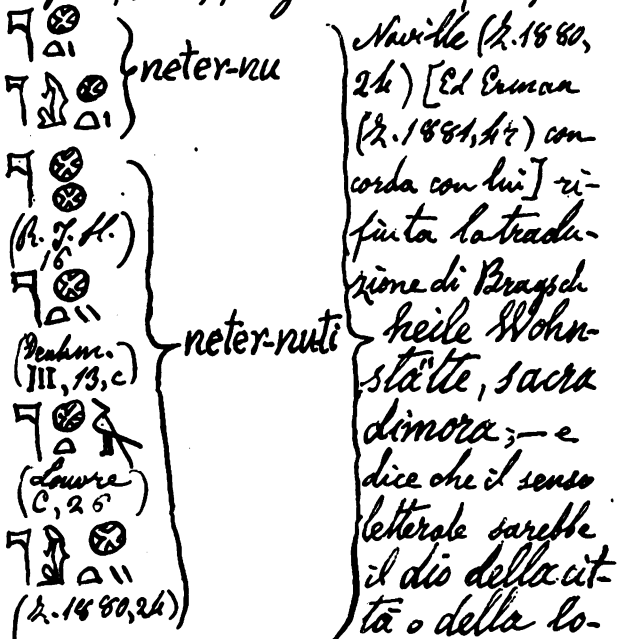 neter-nu
(R. J. H.
16)
(Denkm.
III, 13, c)
(Louvre
C, 26)
(Z. 1880, 24)
neter-nuti
Naville (Z. 1880,
24) [Ed Erman
(Z. 1881, 42) con-
corda con lui] ri-
fiuta la tradu-
zione di Brugsch
heile Wohn-
stätte, sacra
dimora; — e
dice che il senso
letterale sarebbe
il dio della cit-
tà o della lo-